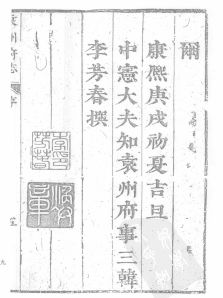 爾
康熙庚戌初夏吉旦
中憲大夫知袁州府事三韓
李芳春撰
袁州府志
序